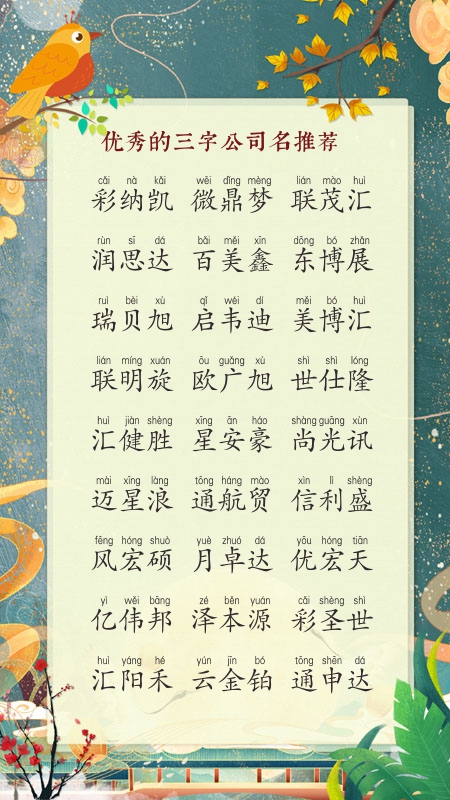 优秀的三字公司名推荐
cǎi nà kǎi wēi dǐng mèng lián mào huì
彩纳凯 微鼎梦 联茂汇
rùn sī dá bǎi měi xīn dōng bó zhǎn
润思达 百美鑫 东博展
ruì bèi xù qǐ wéi dí měi bó huì
瑞贝旭 启韦迪 美博汇
lián míng xuán ōu guǎng xù shì shì lóng
联明旋 欧广旭 世仕隆
huì jiàn shèng xīng ān háo shàng guāng xùn
汇健胜 星安豪 尚光讯
mài xīng làng tōng háng mào xìn lì shèng
迈星浪 通航贸 信利盛
fēng hóng shuò yuè zhuó dá yōu hóng tiān
风宏硕 月卓达 优宏天
yì wěi bāng zé běn yuán cǎi shèng shì
亿伟邦 泽本源 彩圣世
huì yáng hé yún jīn bó tōng shēn dá
汇阳禾 云金铂 通申达